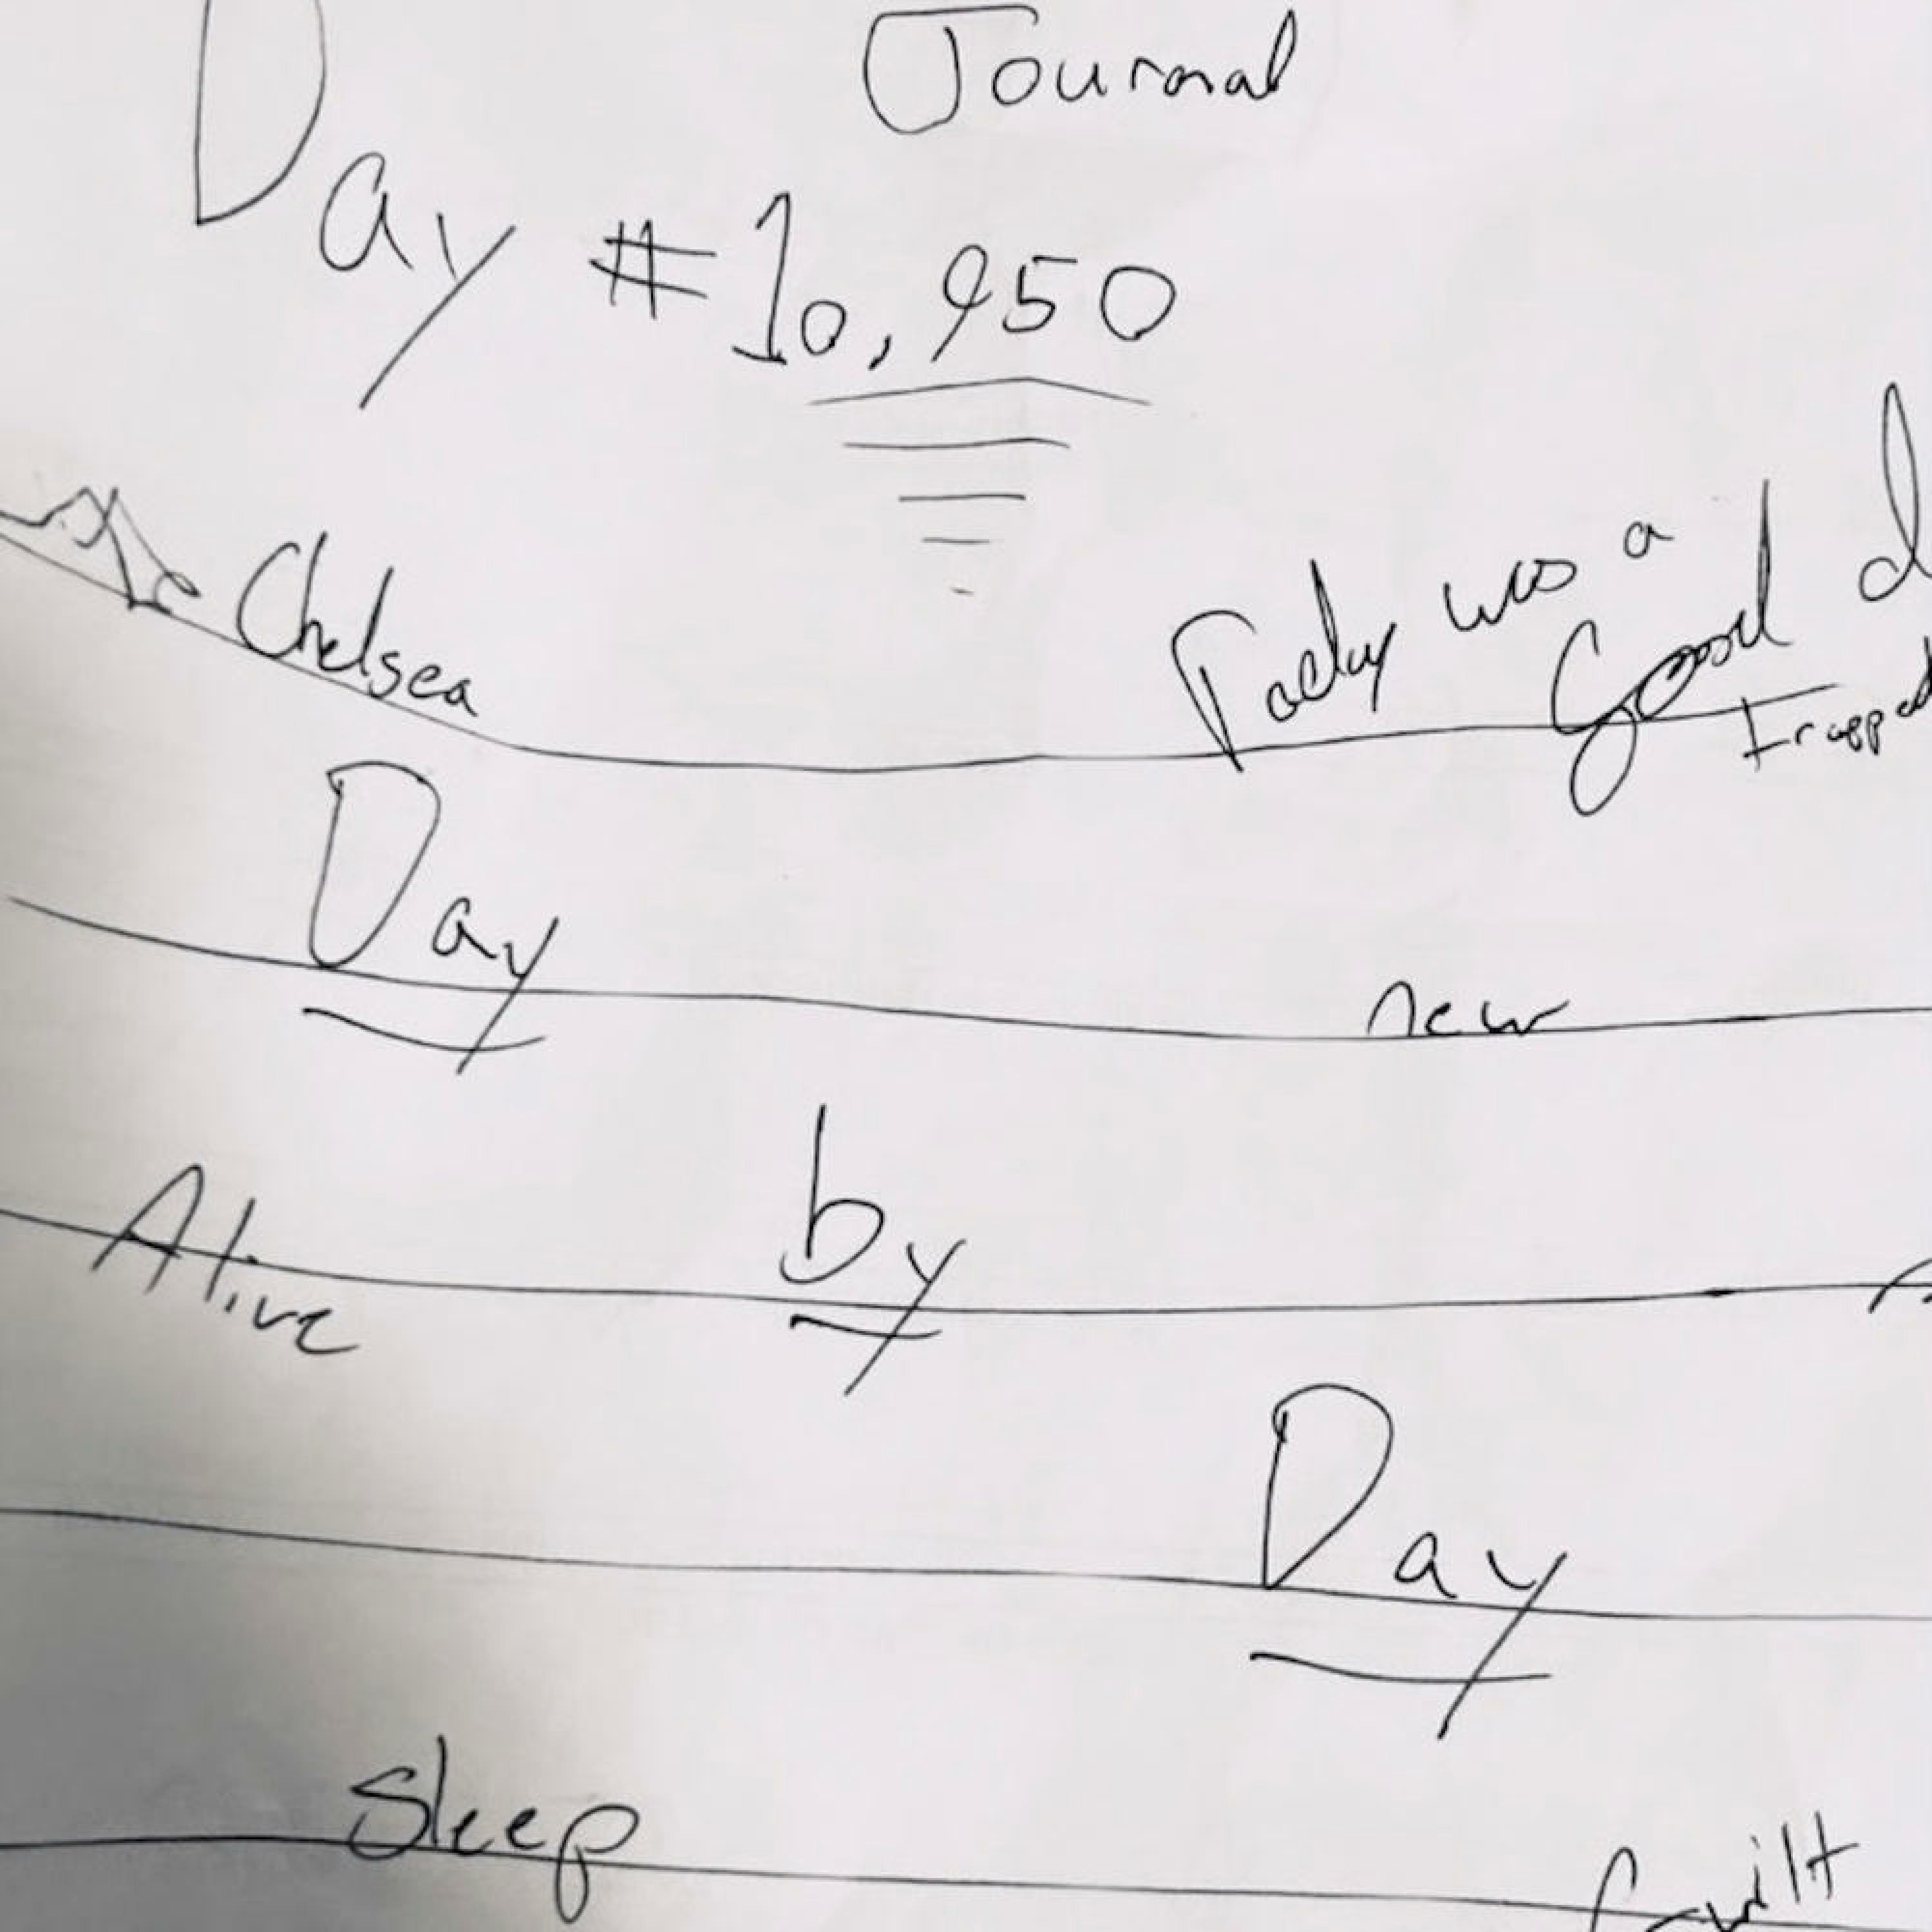 Journal
Day #10,950
Chelsea
Today was a Good
Trapped
Day
new
Alive
by
Day
Sleep
Guilt